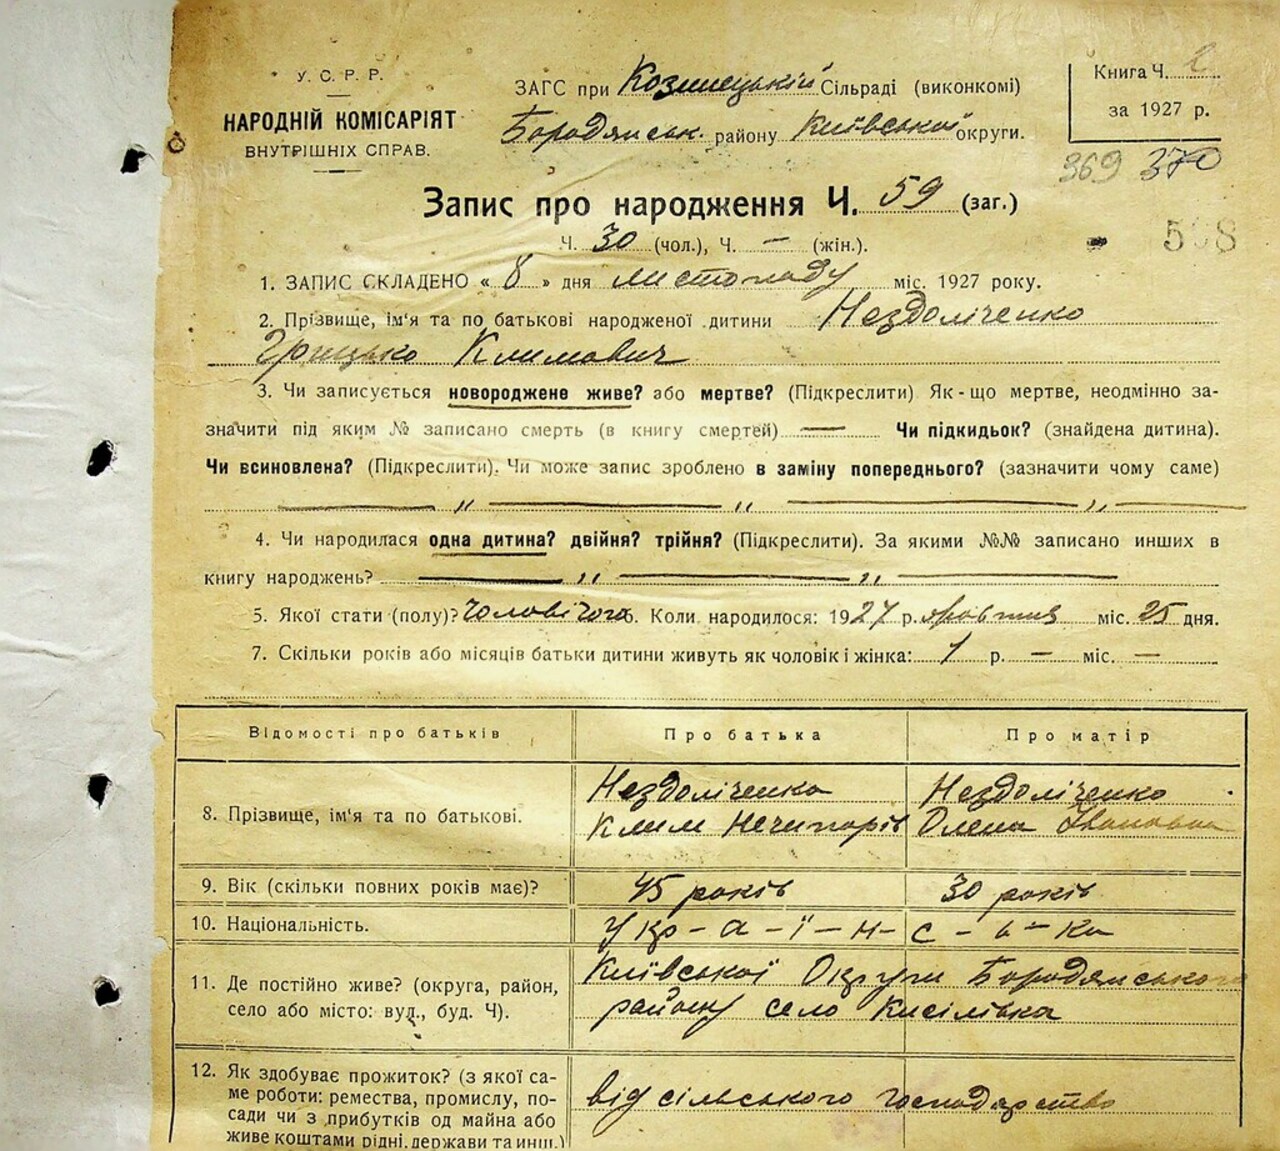 У. С. Р. Р.
НАРОДНІЙ КОМІСАРІЯТ
ВНУТРІШНІХ СПРАВ.
ЗАГС при Козинецькій Сільраді (виконкомі)
Бородянськ. району Київської округи.
Книга Ч. 2
за 1927 р.
369 370
Запис про народження Ч. 59 (заг.)
Ч. 30 (чол.), Ч. — (жін.).
1. ЗАПИС СКЛАДЕНО « 8 » дня листопаду міс. 1927 року.
2. Прізвище, ім'я та по батькові народженої дитини Нездоліченко
Грицько Климович
3. Чи записується новороджене живе? або мертве? (Підкреслити) Як-що мертве, неодмінно за-
значити під яким № записано смерть (в книгу смертей) — Чи підкидьок? (знайдена дитина).
Чи всиновлена? (Підкреслити). Чи може запис зроблено в заміну попереднього? (зазначити чому саме)
— „ — „ — „ —
4. Чи народилася одна дитина? двійня? трійня? (Підкреслити). За якими №№ записано инших в
книгу народжень? — „ — „ —
5. Якої стати (полу)? чоловічого 6. Коли народилося: 1927 р. жовтня міс. 25 дня.
7. Скільки років або місяців батьки дитини живуть як чоловік і жінка: 1 р. — міс. —
Відомості про батьків Про батька Про матір
8. Прізвище, ім'я та по батькові.
Нездоліченко
Клим Нечипорів
Нездоліченко
Олена Іванівна
9. Вік (скільки повних років має)? 45 років 30 років
10. Національність. Укр-а-ї-н-с-ь-ка
11. Де постійно живе? (округа, район,
село або місто: вул., буд. Ч).
Київської Округи Бородянського
району село Кисілівка
12. Як здобуває прожиток? (з якої са-
ме роботи: ремества, промислу, по-
сади чи з прибутків од майна або
живе коштами рідні, держави та инш.)
від сільського господарство